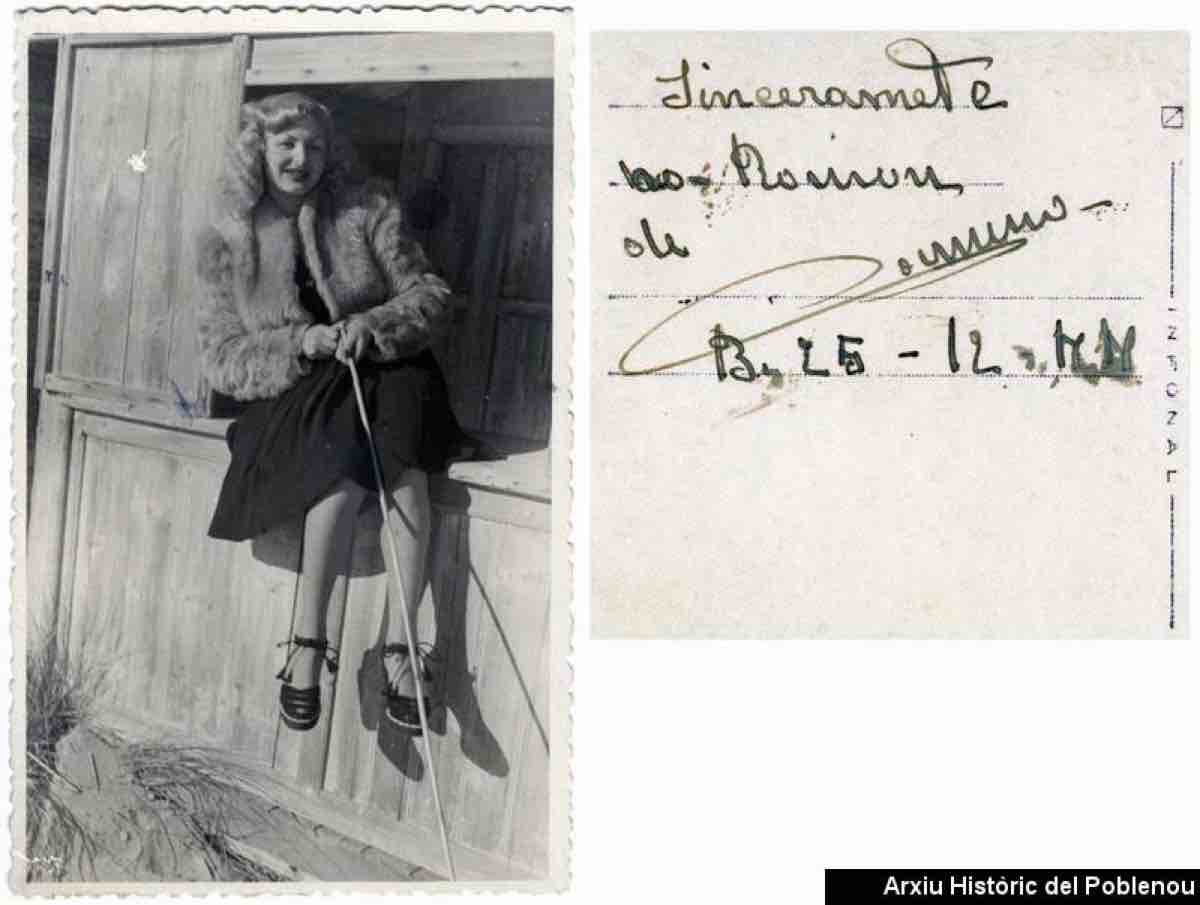 Sinceramete
Roimon
de
B. 25 - 12 - 44
INFONAL
Arxiu Històric del Poblenou